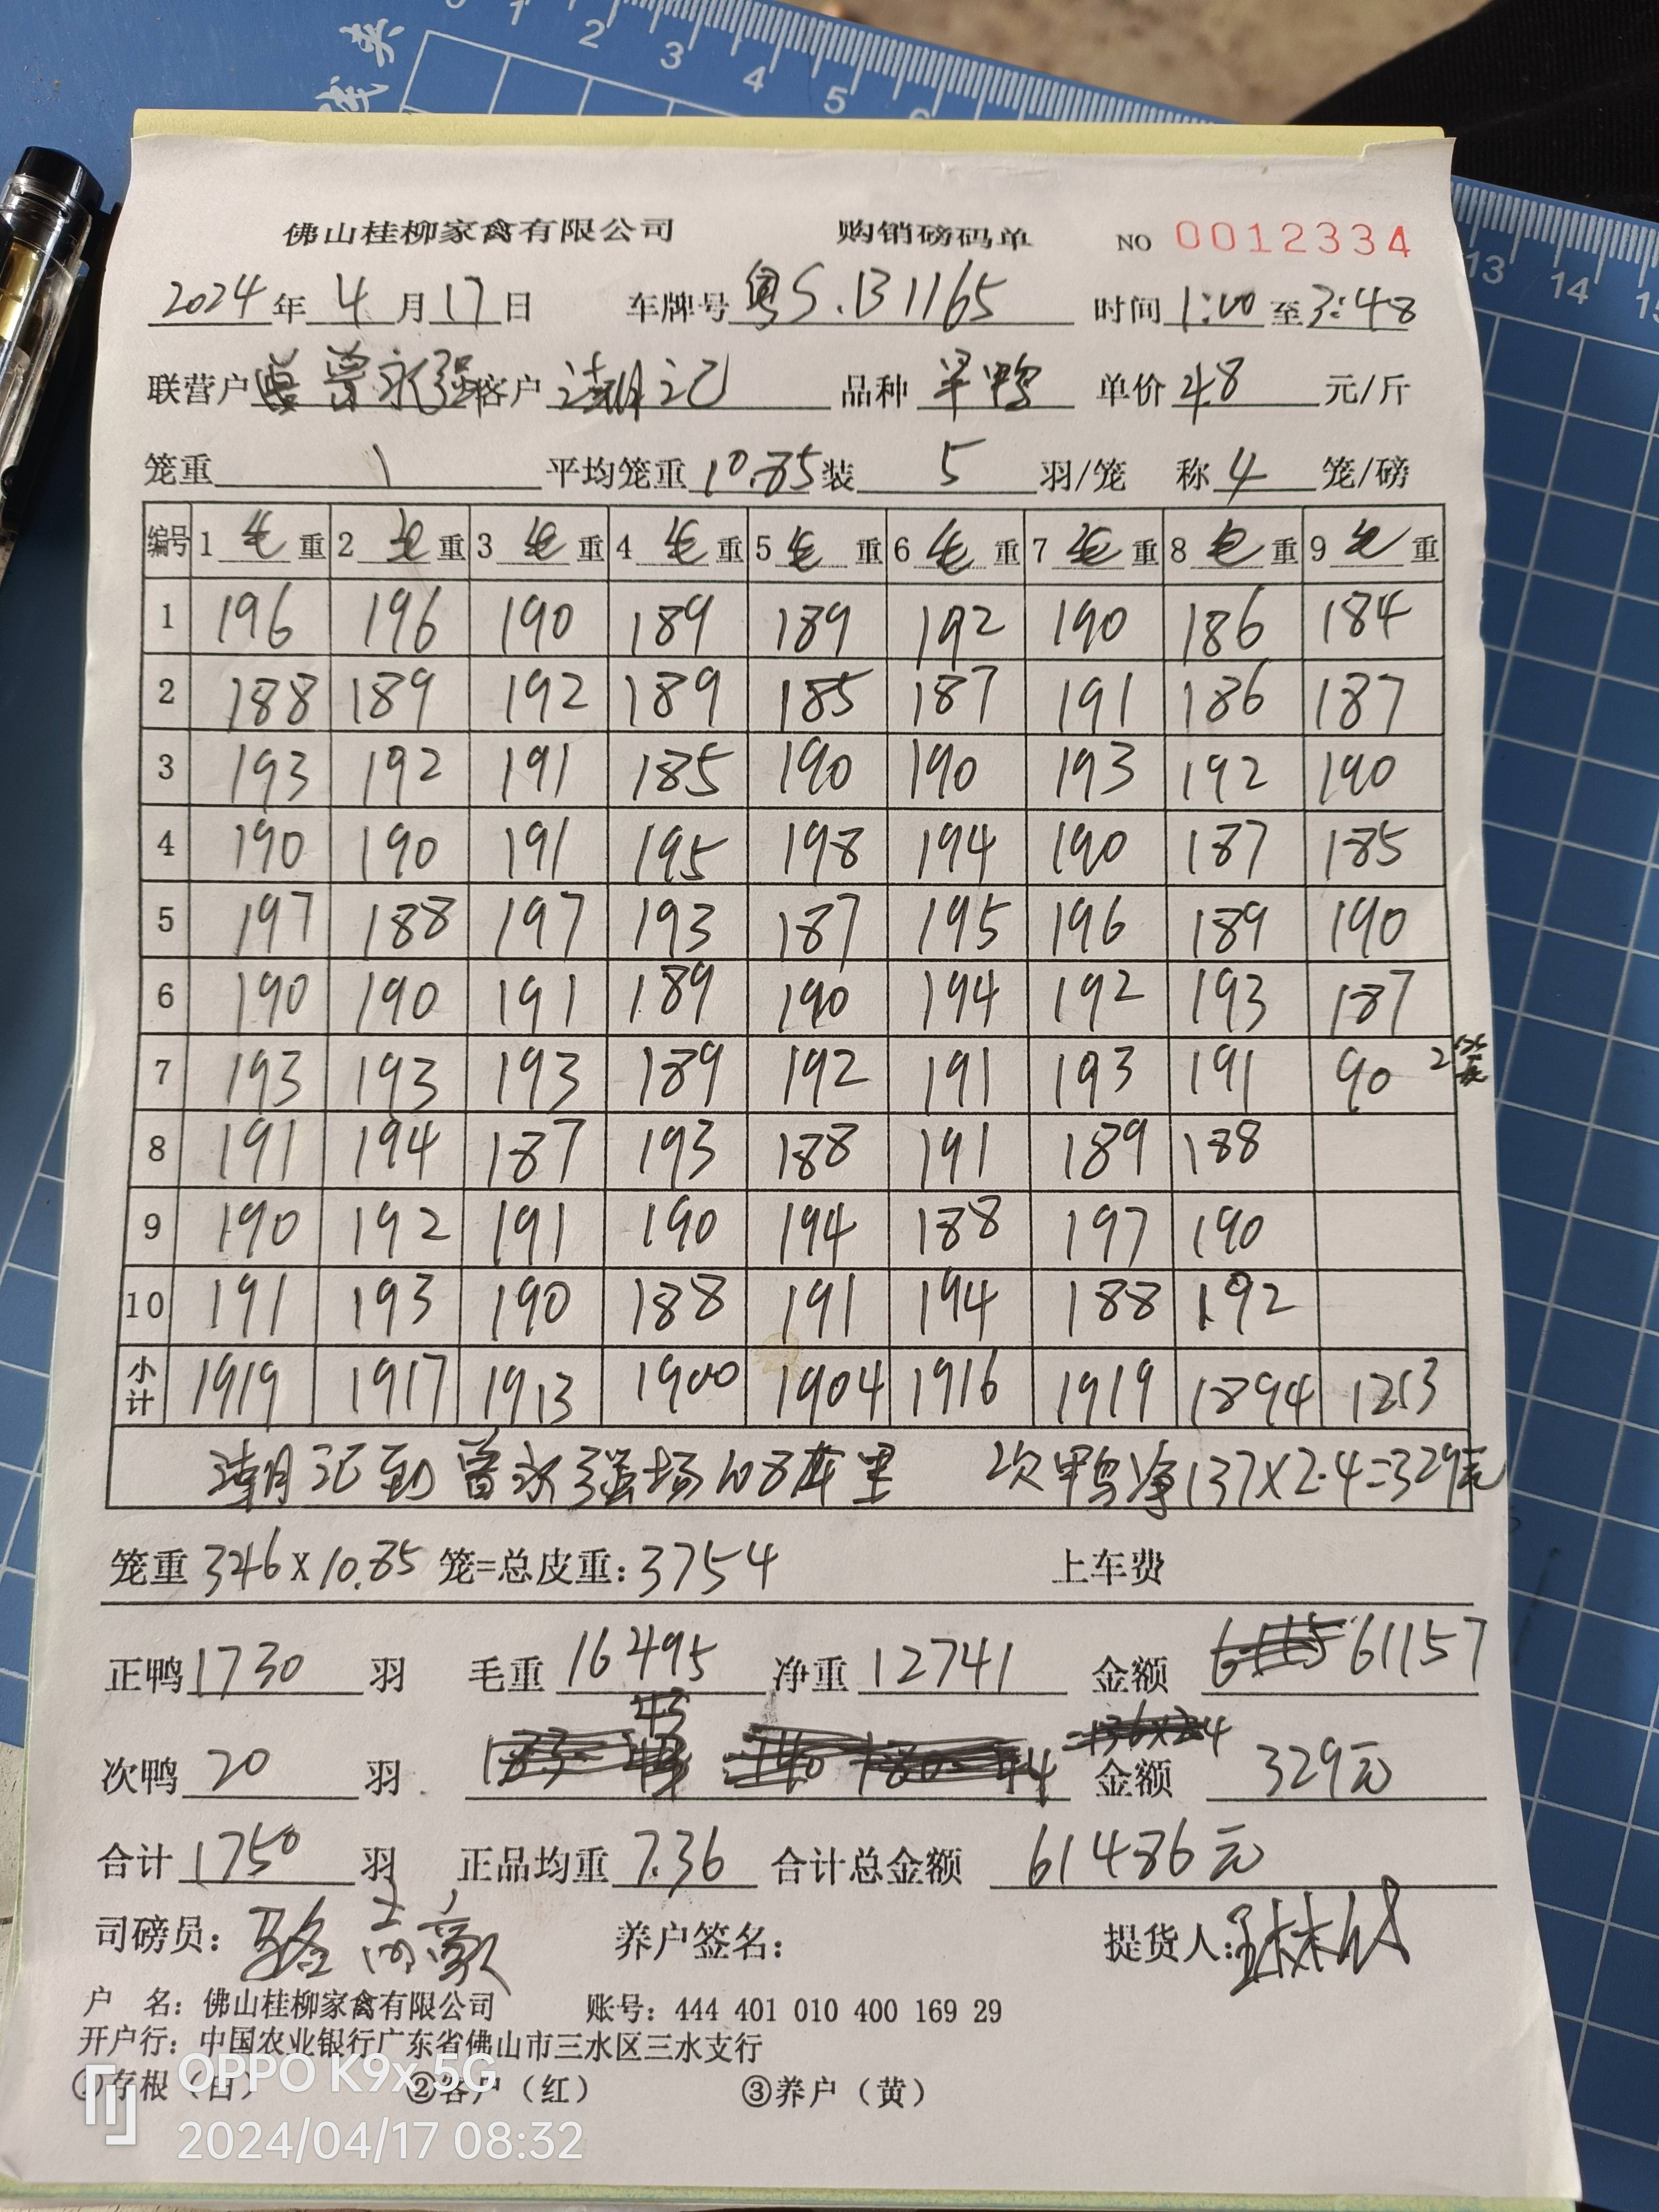 佛山桂柳家禽有限公司 购销磅码单 NO 0012334
2024年4月17日 车牌号 粤S.B1165 时间 1:00至3:48
联营户 曾永强 客户 潮记 品种 旱鸭 单价 4.8 元/斤
笼重 1 平均笼重 10.85 装 5 羽/笼 称 4 笼/磅
编号 1毛重 2毛重 3毛重 4毛重 5毛重 6毛重 7毛重 8毛重 9毛重
1 196 196 190 189 189 192 190 186 184
2 188 189 192 189 185 187 191 186 187
3 193 192 191 185 190 190 193 192 190
4 190 190 191 195 198 194 190 187 185
5 197 188 197 193 187 195 196 189 190
6 190 190 191 189 190 194 192 193 187
7 193 193 193 189 192 191 193 191 90 2
8 191 194 187 193 188 191 189 188
9 190 192 191 190 194 188 197 190
10 191 193 190 188 191 194 188 192
小计 1919 1917 1913 1900 1904 1916 1919 1894 1213
潮记到曾永强场108车里 次鸭净137X2.4=329元
笼重 346X10.85 笼=总皮重: 3754 上车费
正鸭 1730 羽 毛重 16495 净重 12741 金额 61157
次鸭 20 羽 金额 329元
合计 1750 羽 正品均重 7.36 合计总金额 61486元
司磅员: 骆志豪 养户签名: 提货人:
户 名: 佛山桂柳家禽有限公司 账号: 444 401 010 400 169 29
开户行: 中国农业银行广东省佛山市三水区三水支行
①存根（白） ②客户（红） ③养户（黄）
OPPO K9x 5G
2024/04/17 08:32
0 1 2 3 4 5 6 13 14 15